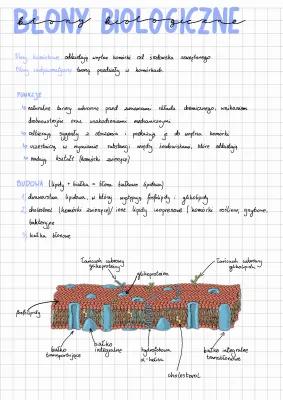 BŁONY BIOLOGICZNE
błony biologiczne
Błony komórkowe oddzielają wnętrze komórki od środowiska zewnętrznego.
Błony tworzą przedziały w komórkach.
FUNKCJE
naturalne bariery ochronne przed zmianami składu chemicznego, wnikaniem
drobnoustrojów oraz uszkodzeniami mechanicznymi
odbierają sygnały z otoczenia i przekazują je do wnętrza komórki
uczestniczą w wymianie substancji między środowiskami, które oddzielają
nadają kształt (komórki zwierzęce)
BUDOWA (lipidy + białka = błona białkowo lipidowa)
1) dwuwarstwa lipidowa, w której występują fosfolipidy i glikolipidy
2) cholesterol (komórki zwierzęce) / inne lipidy (komórki roślinne, grzybowe,
bakteryjne
3) białka błonowe
łańcuch cukrowy
glikoproteiny
glikoproteina
łańcuch cukrowy
glikolipidu
fosfolipidy
białko
transportujące
białko
integralne
hydrofobowa
α-helisa
cholesterol
białko integralne
transbłonowe